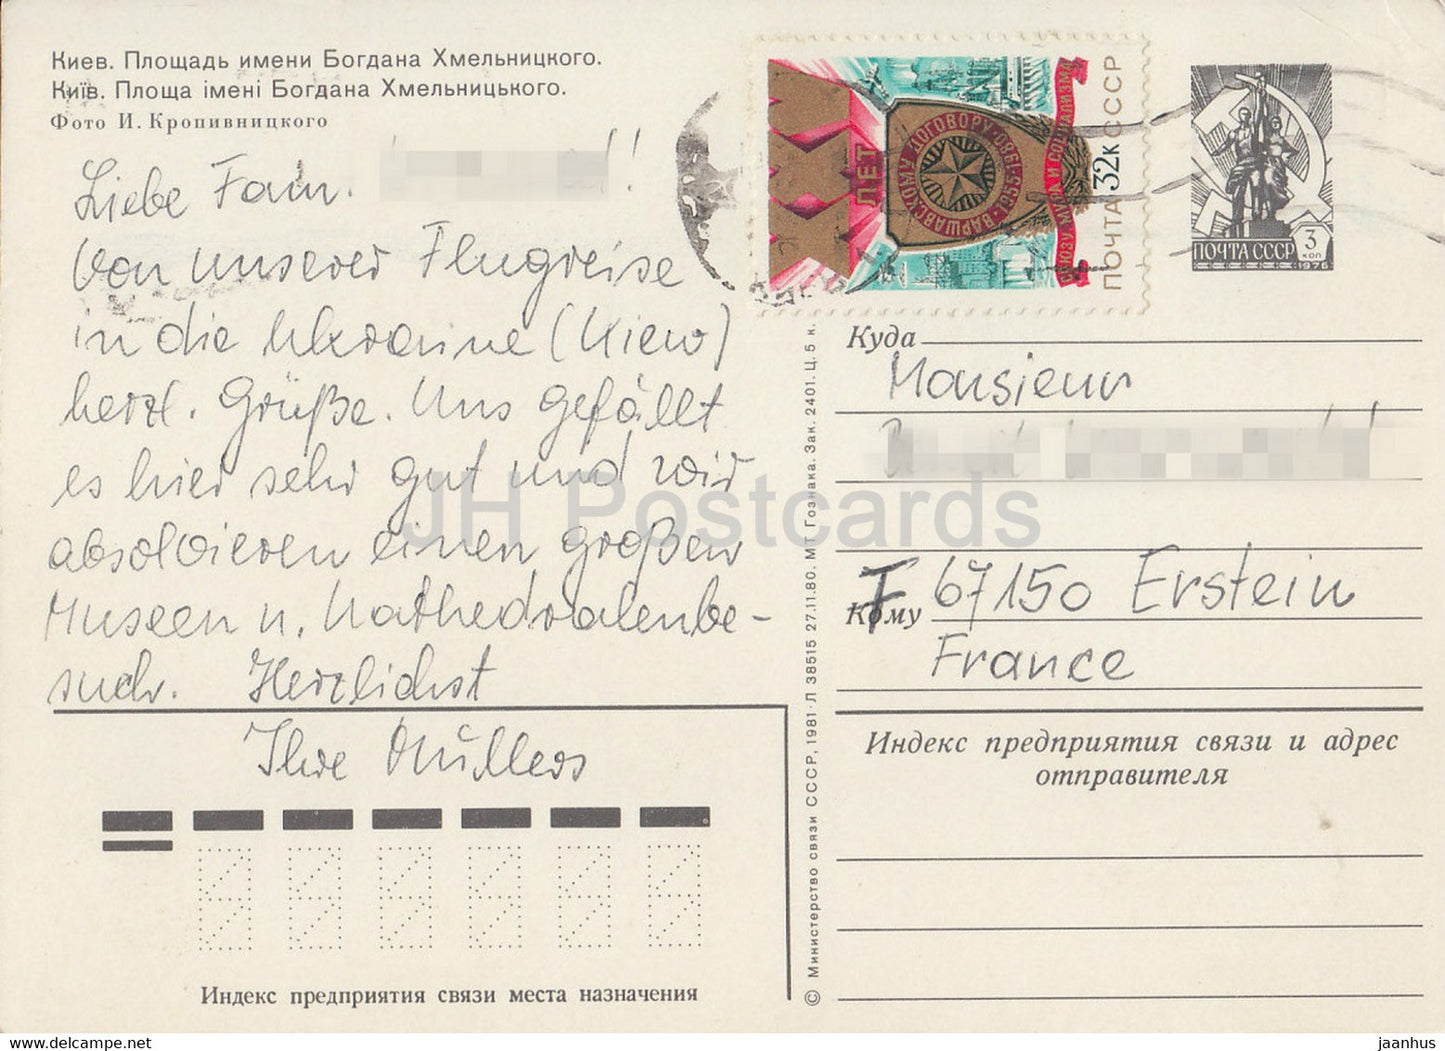 Киев. Площадь имени Богдана Хмельницкого.
Київ. Площа імені Богдана Хмельницького.
Фото И. Кропивницкого
Liebe Fam.
Von unserer Flugreise
in die Ukraine (Kiew)
herzl. Grüße. Uns gefällt
es hier sehr gut und wir
absolvieren einen großen
Museen u. Kathedralenbe-
such. Herzlichst
Ihre Müllers
Индекс предприятия связи места назначения
© Министерство связи СССР, 1981. Л 38515 27.11.80. МТ Гознака. Зак. 2401. Ц. 5 к.
XXV ЛЕТ
ВАРШАВСКОМУ ДОГОВОРУ · 1955-1980
СОЮЗУ МИРА И СОЦИАЛИЗМА
ПОЧТА 32к СССР
ПОЧТА СССР 3 коп
1976
Куда
Monsieur
Кому
F 67150 Erstein
France
Индекс предприятия связи и адрес
отправителя
JH Postcards
www.delcampe.net
jaanhus